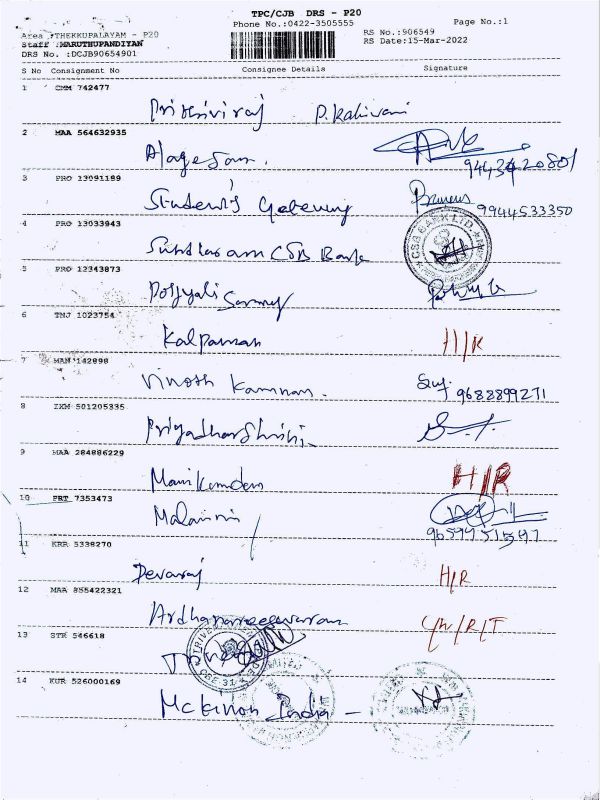 TPC/CJB DRS - P20
Phone No.:0422-3505555
Page No.:1
Area :THEKKUPALAYAM - P20
Staff :MARUTHUPANDIYAN
DRS No. :DCJB90654901
RS No.:906549
RS Date:15-Mar-2022
S No Consignment No Consignee Details Signature
1 CMM 742477
Prithiviraj P. Kalivani
2 MAA 564632935
Alagesam.
9443420801
3 PRO 13091189
Student's Gateway
9944533350
4 PRO 13033943
Sundaram CSB Bank
CSB BANK LTD.
5 PRO 12343873
6 TMJ 1023754
Kalpanan H/R
7 MAN 142898
Vinoth Kannan.
9688899271
8 IXM 501205835
Priyadharshini.
9 MAA 284886229
Manikandan H/R
10 PRT 7353473
11 KRR 5338270
Devaraj H/R
12 MAA 855422321
Ardhanareeswaran
13 STR 546618
14 KUR 526000169
McKinon India -